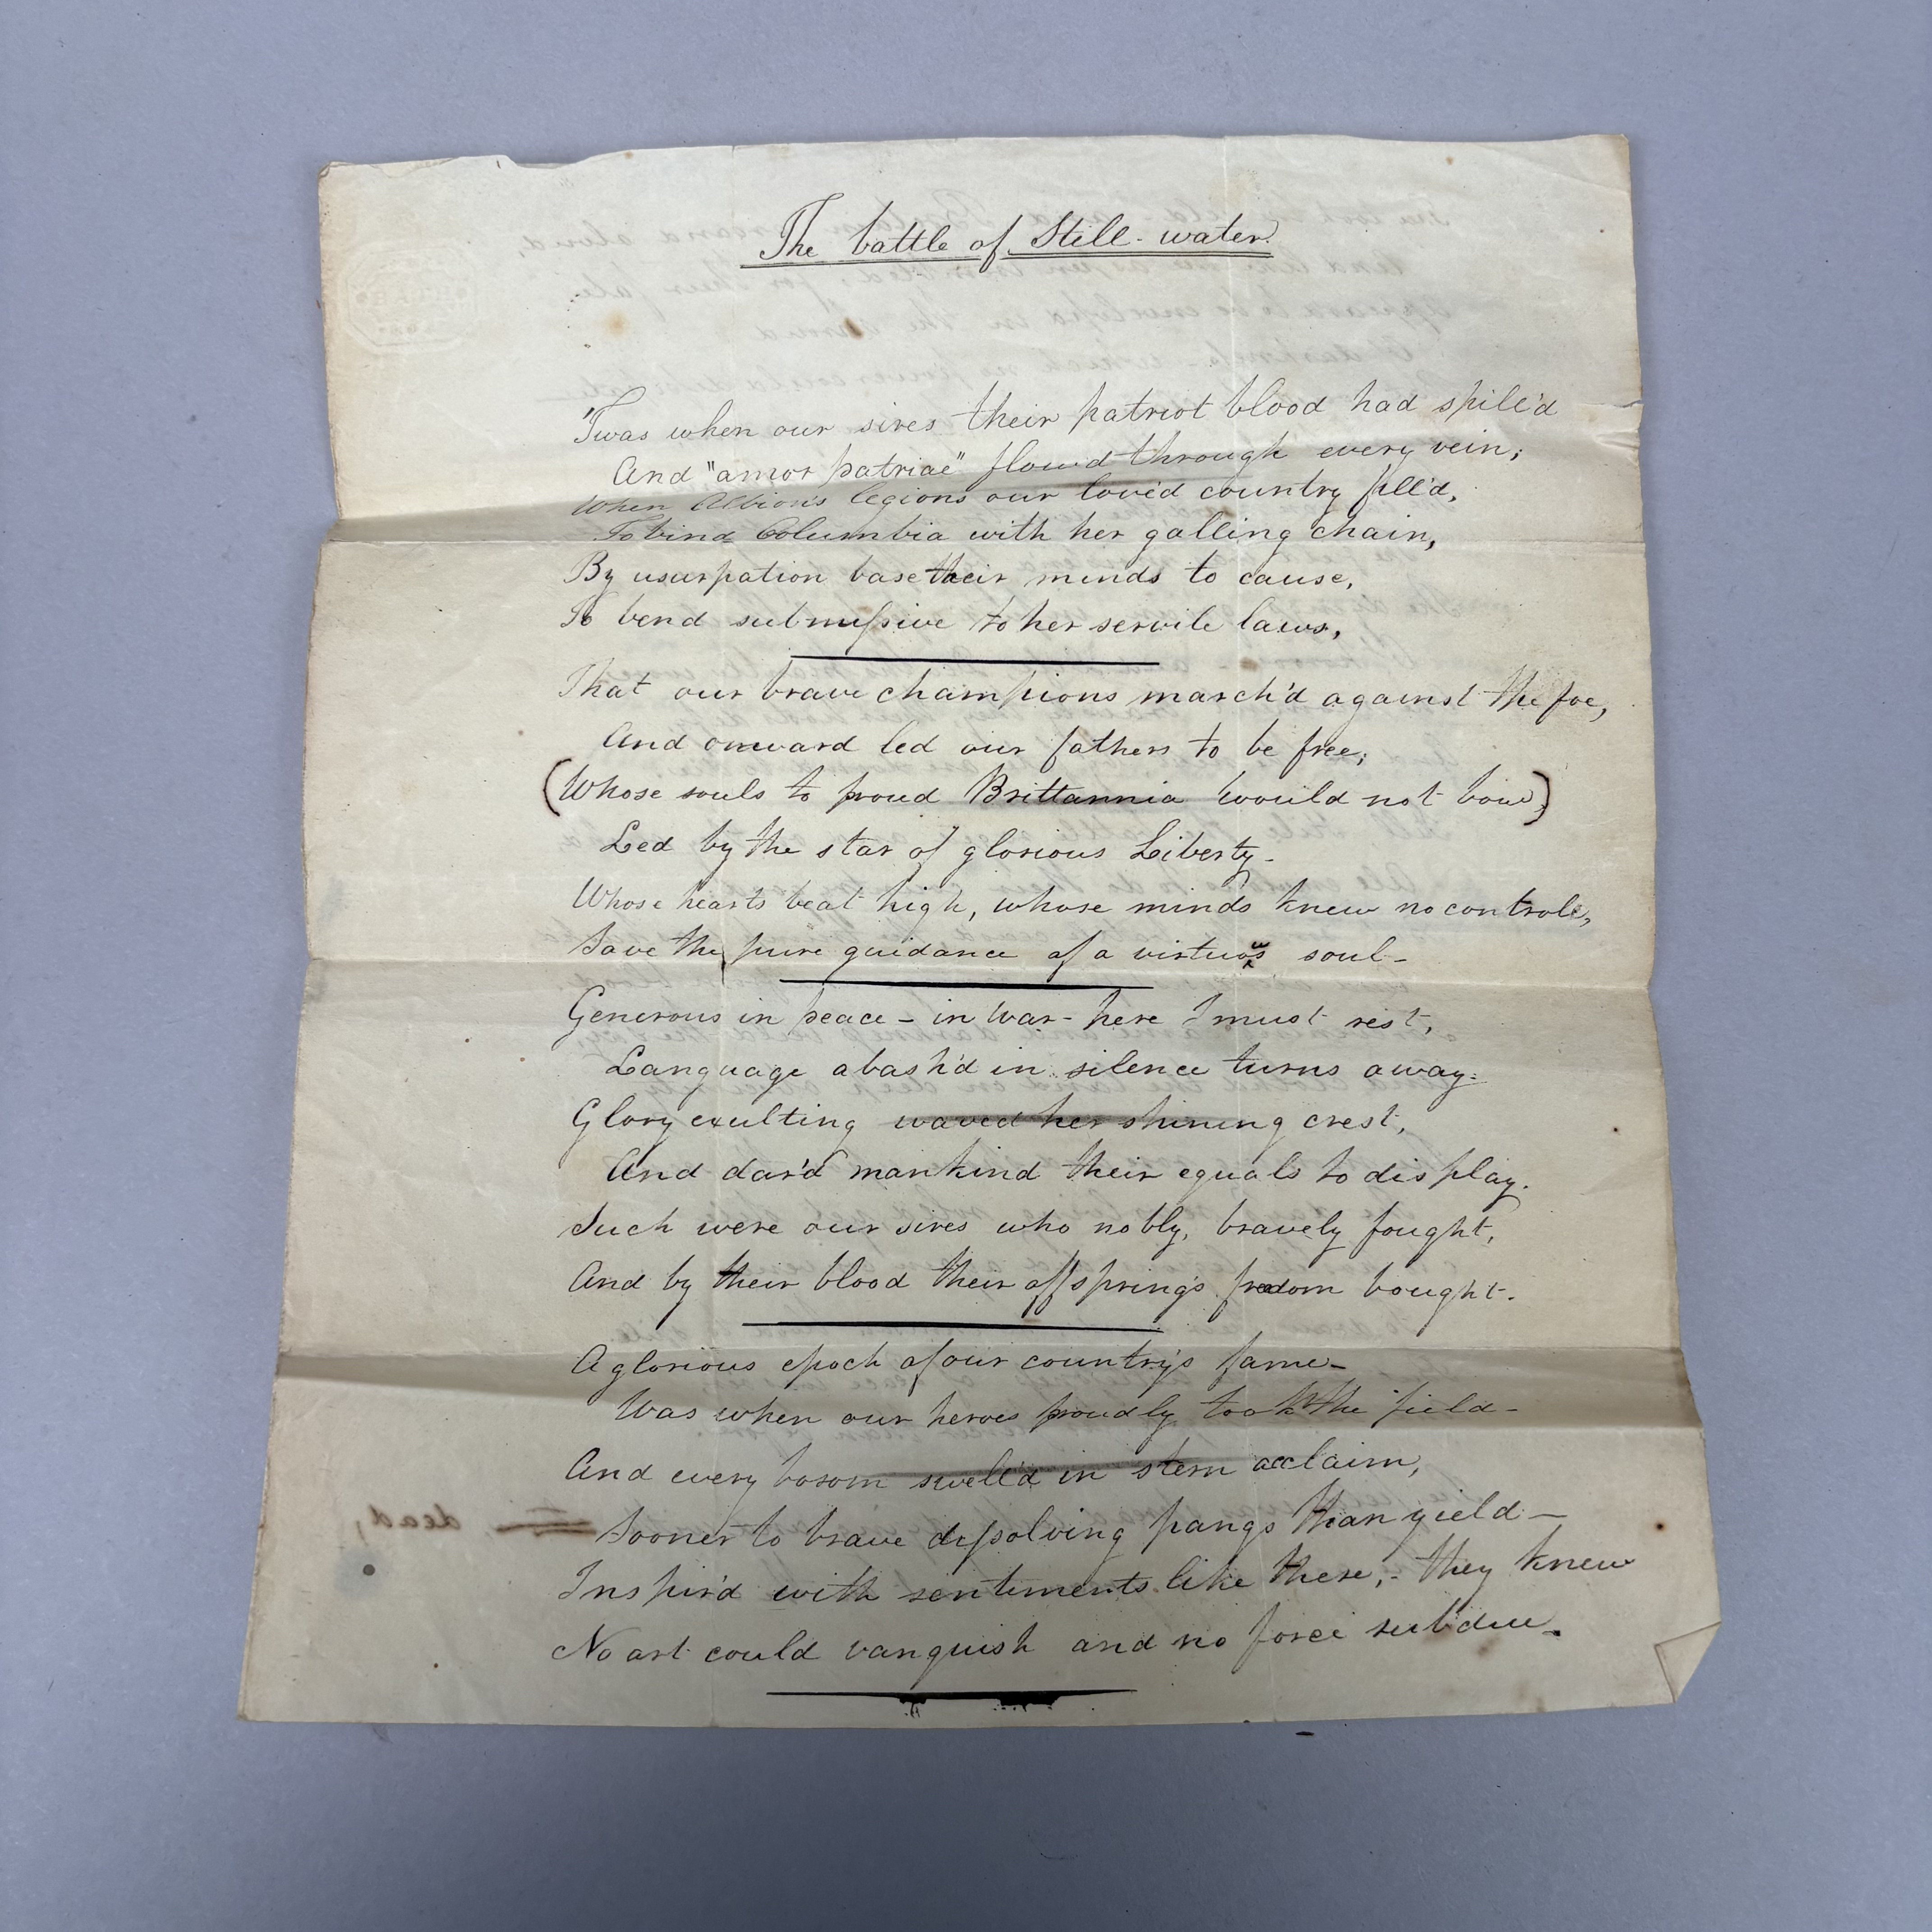 The battle of Still-water.
'Twas when our sires their patriot blood had spill'd
And "amor patriae" flow'd through every vein;
When Albion's legions our lov'd country fill'd,
To bind Columbia with her galling chain,
By usurpation base their minds to cause,
To bend submissive to her servile laws,
That our brave champions march'd against the foe,
And onward led our fathers to be free;
(Whose souls to proud Brittannia would not bow,)
Led by the star of glorious Liberty-
Whose hearts beat high, whose minds knew no controle,
Save the pure guidance of a virtuous soul-
Generous in peace - in war - here I must rest,
Language abash'd in silence turns away-
Glory exulting waved her shining crest,
And dar'd mankind their equals to display.
Such were our sires who nobly, bravely fought,
And by their blood their offspring's freedom bought.
A glorious epoch of our country's fame-
Was when our heroes proudly took the field-
And every bosom swell'd in stern acclaim,
Sooner to brave dissolving pangs than yield-
Inspir'd with sentiments like these,- they knew
No art could vanquish and no force subdue.
dead,